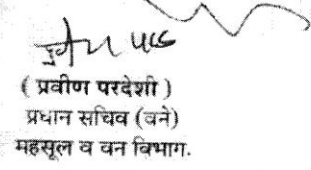 ( प्रवीण परदेशी )
प्रधान सचिव (वने)
महसूल व वन विभाग.